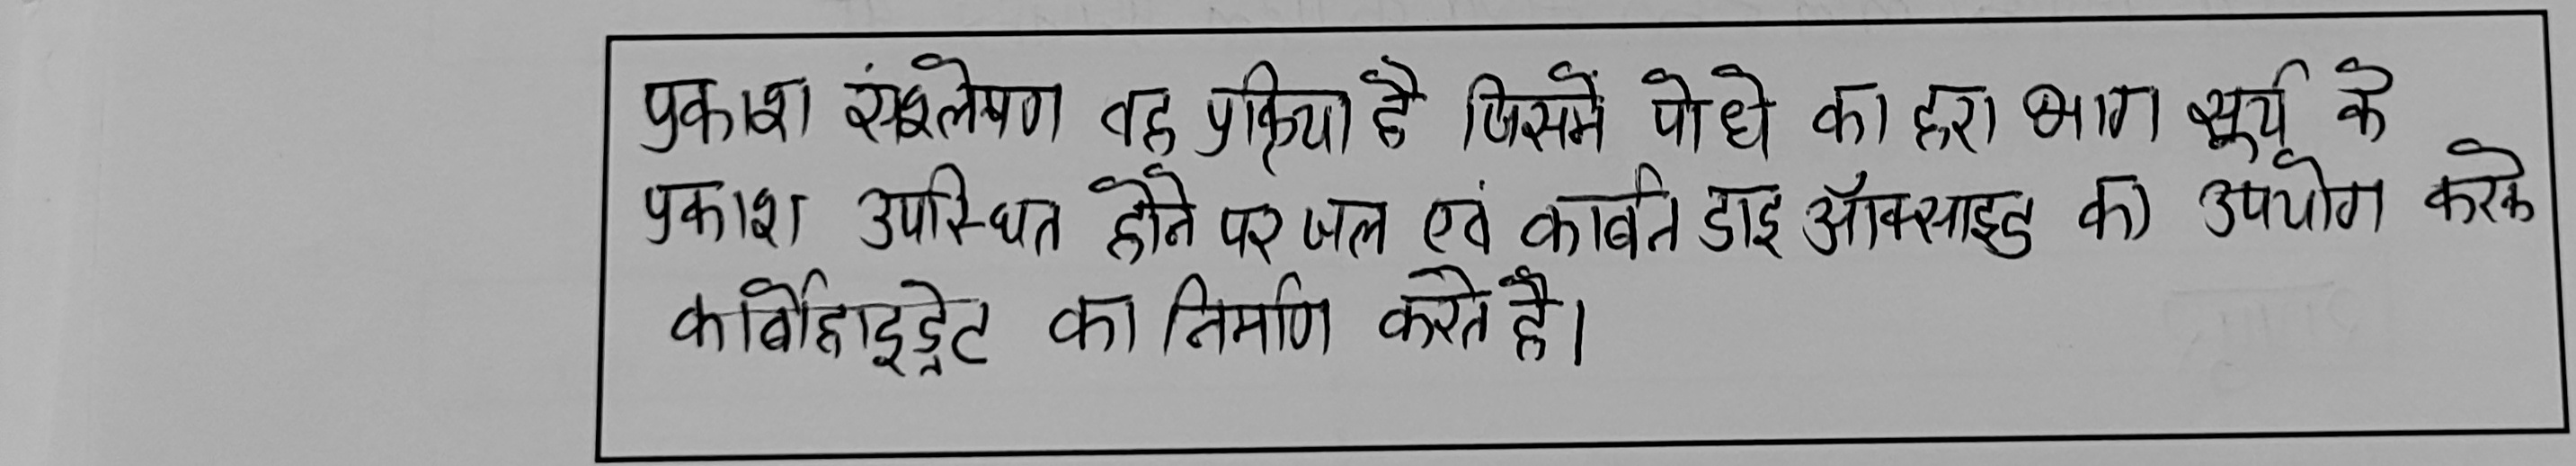 प्रकाश संश्लेषण वह प्रक्रिया है जिसमें पोधे का हरा भाग सूर्य के
प्रकाश उपस्थित होने पर जल एवं कार्बन डाइ ऑक्साइड का उपयोग करके
कार्बोहाइड्रेट का निर्माण करते है।